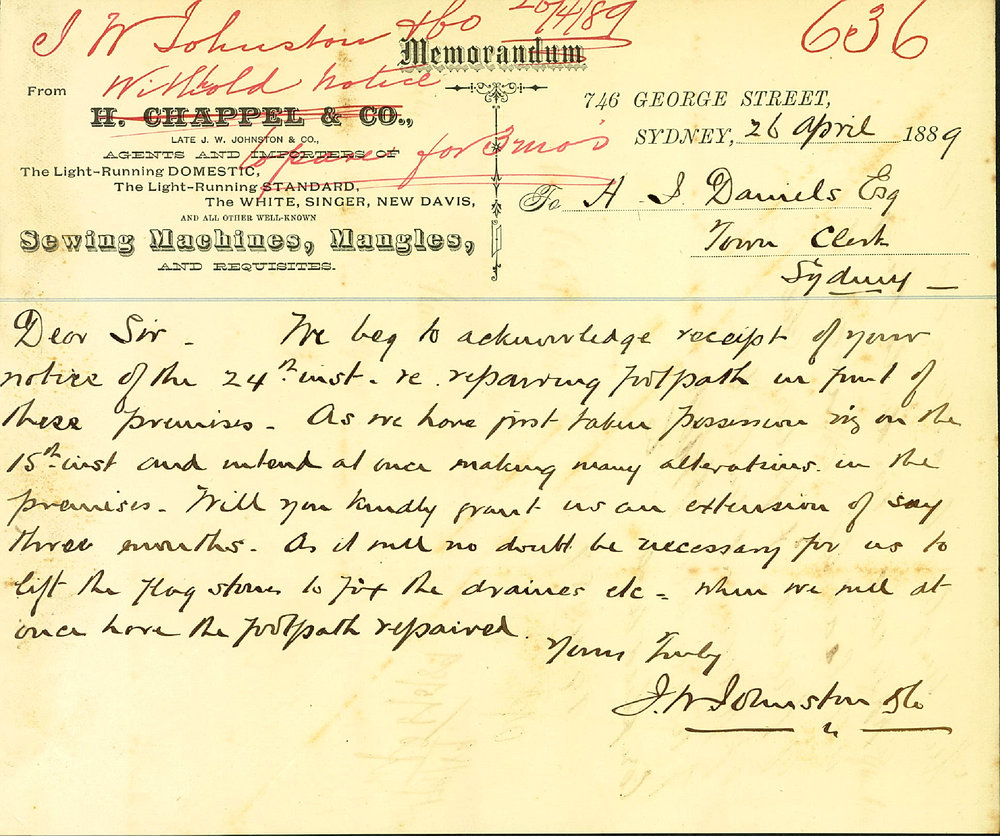 J W Johnston & Co 26/4/89
636
Withhold notice
to pave for 3 mo's
Memorandum
From
H. CHAPPEL & CO.,
LATE J. W. JOHNSTON & CO.,
AGENTS AND IMPORTERS OF
The Light-Running DOMESTIC,
The Light-Running STANDARD,
The WHITE, SINGER, NEW DAVIS,
AND ALL OTHER WELL-KNOWN
Sewing Machines, Mangles,
AND REQUISITES.
746 GEORGE STREET,
SYDNEY, 26 April 1889
To H. J. Daniels Esq
Town Clerk
Sydney
Dear Sir - We beg to acknowledge receipt of your
notice of the 24th inst. re. repairing footpath in front of
these premises. As we have first taken possession viz on the
15th inst and intend at once making many alterations in the
premises. Will you kindly grant us an extension of say
three months. As it will no doubt be necessary for us to
lift the flag stones to fix the draines etc - when we will at
once have the footpath repaired.
Yours Truly
J. W Johnston & Co